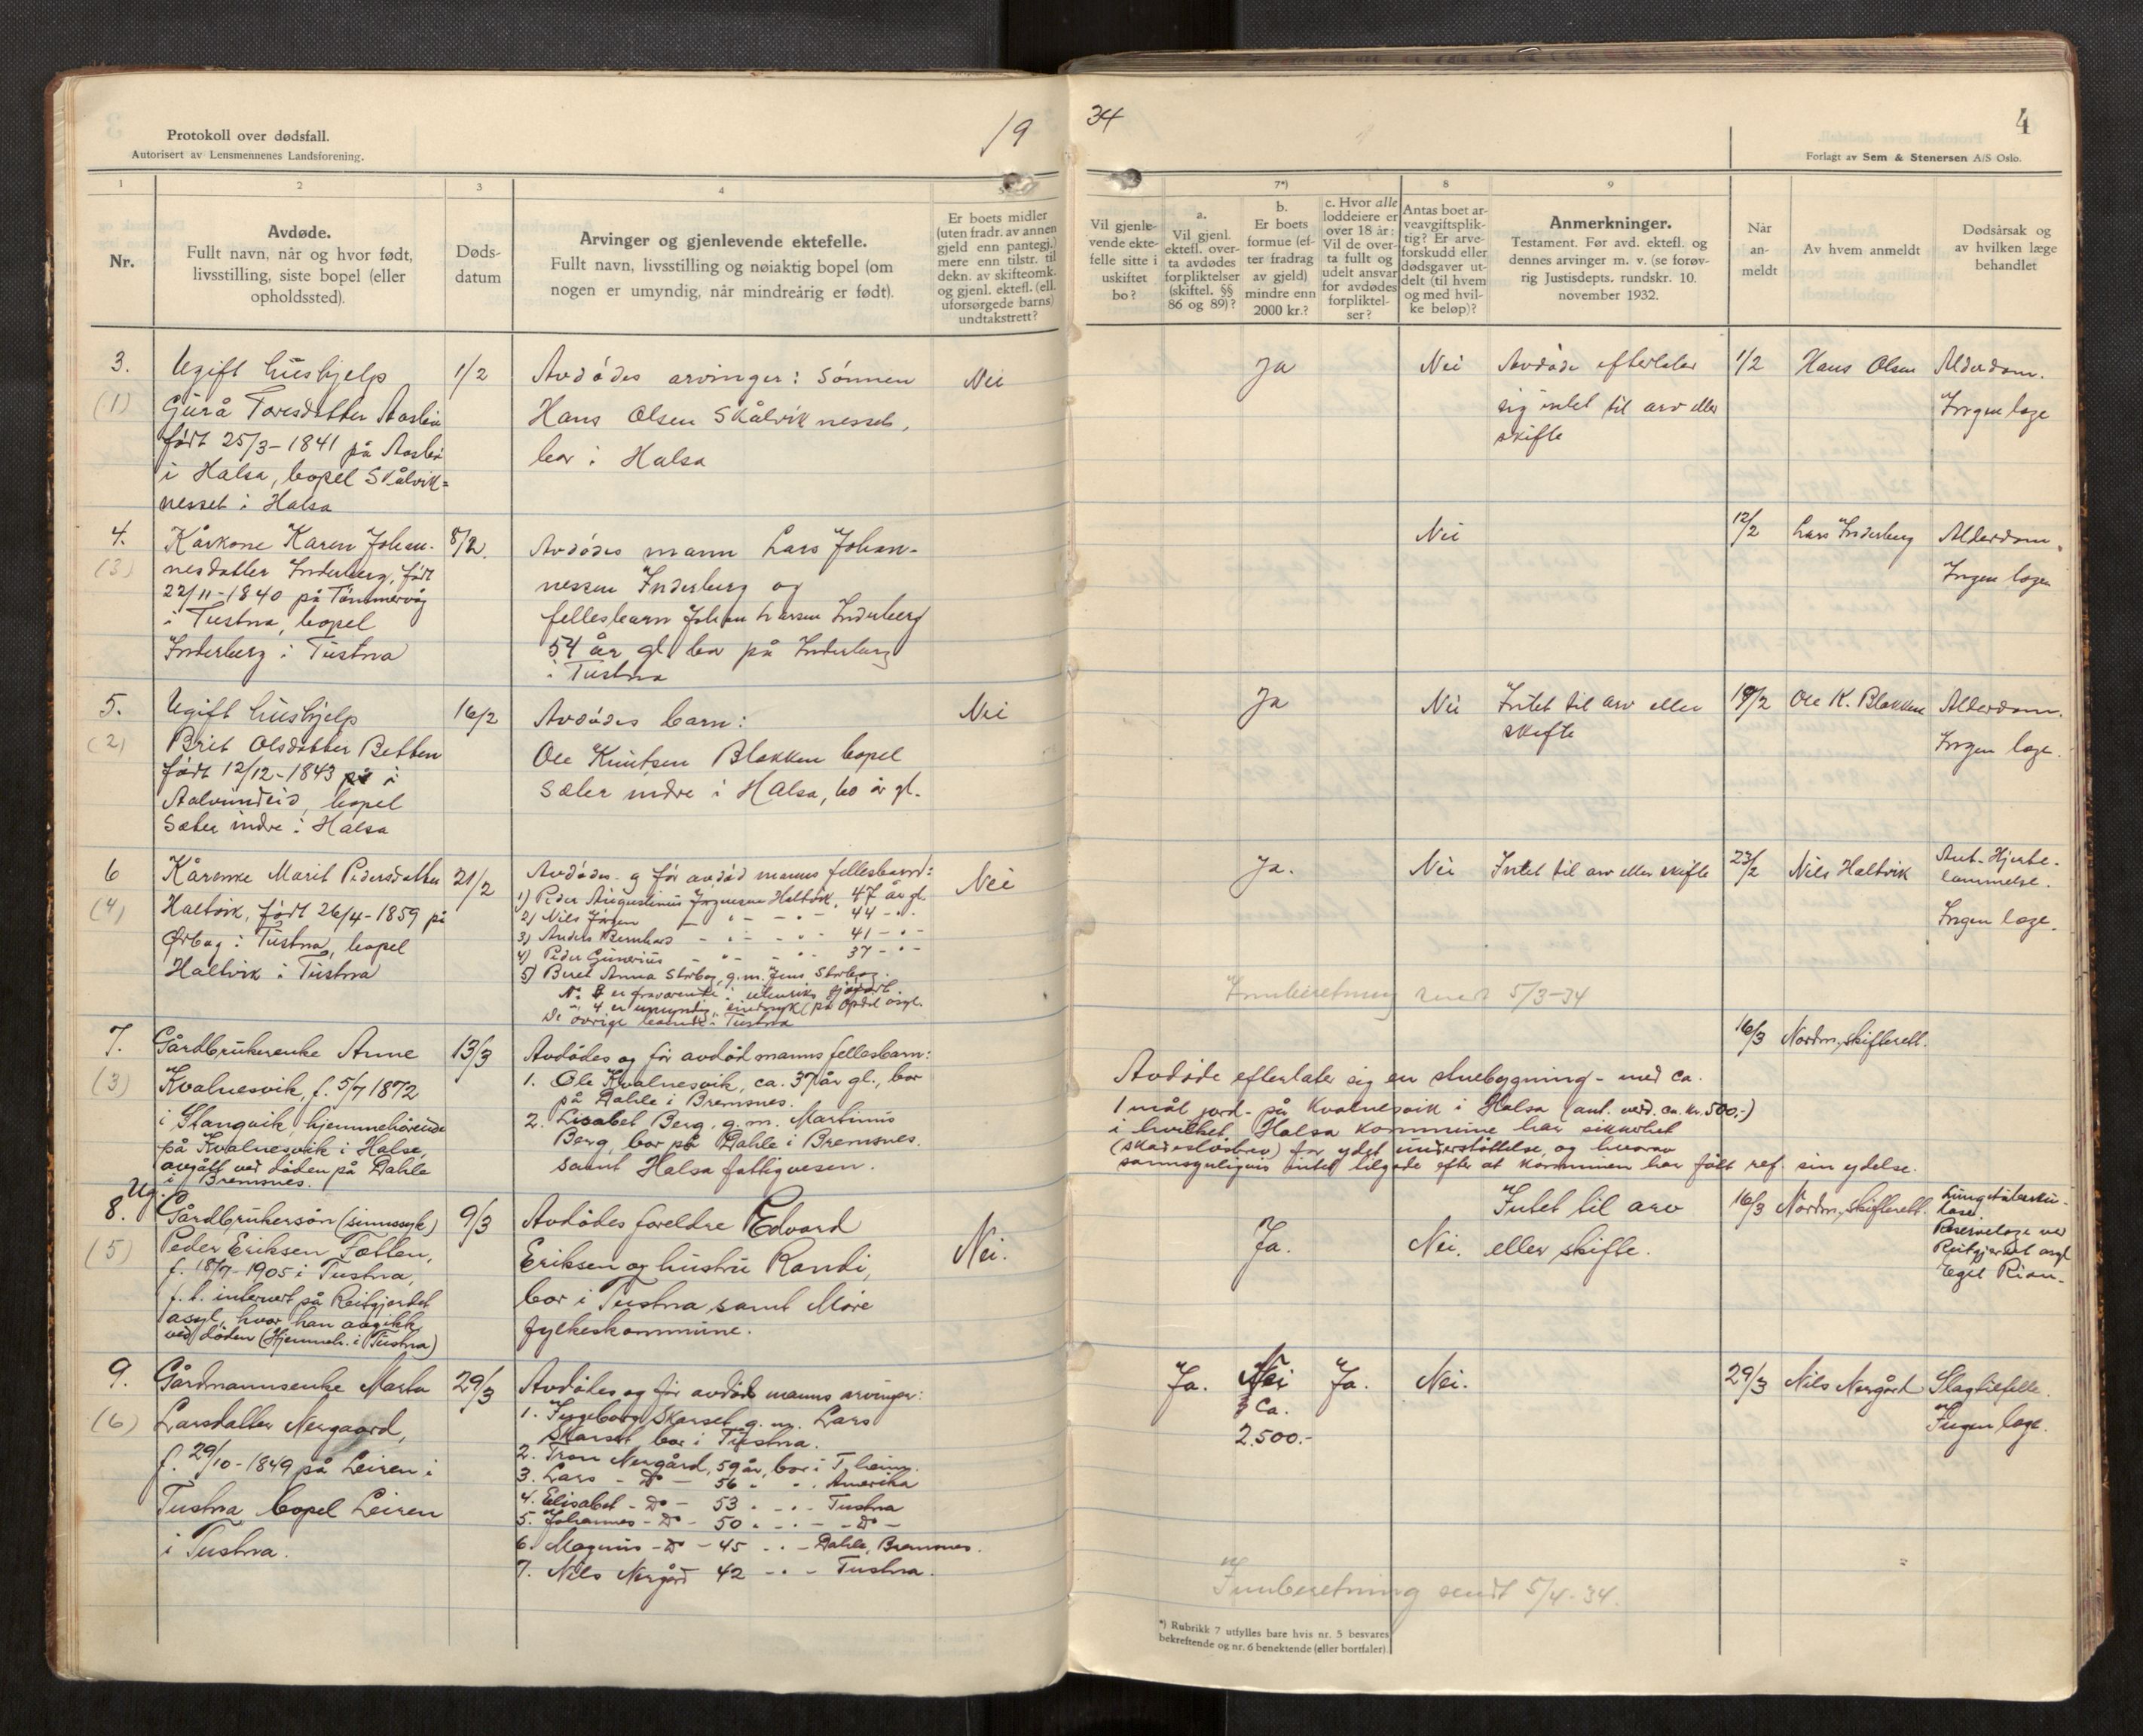 Protokoll over dødsfall.
Autorisert av Lensmennenes Landsforening.
19
34
4
Forlagt av Sem & Stenersen A/S Oslo.
1
2
3
4
5
7*)
8
9
Nr.
Avdøde.
Fullt navn, når og hvor født,
livsstilling, siste bopel (eller
opholdssted).
Døds-
datum
Arvinger og gjenlevende ektefelle.
Fullt navn, livsstilling og nøiaktig bopel (om
nogen er umyndig, når mindreårig er født).
Er boets midler
(uten fradr. av annen
gjeld enn pantegj.)
mere enn tilstr. til
dekn. av skifteomk.
og gjenl. ektefl. (ell.
uforsørgede barns)
undtakstrett?
Vil gjenle-
vende ekte-
felle sitte i
uskiftet
bo?
a.
Vil gjenl.
ektefl. over-
ta avdødes
forpliktelser
(skiftel. §§
86 og 89)?
b.
Er boets
formue (ef-
ter fradrag
av gjeld)
mindre enn
2000 kr.?
c. Hvor alle
loddeiere er
over 18 år:
Vil de over-
ta fullt og
udelt ansvar
for avdødes
forpliktel-
ser?
Antas boet ar-
veavgiftsplik-
tig? Er arve-
forskudd eller
dødsgaver ut-
delt (til hvem
og med hvil-
ke beløp)?
Anmerkninger.
Testament. Før avd. ektefl. og
dennes arvinger m. v. (se forøv-
rig Justisdepts. rundskr. 10.
november 1932.
Når
an-
meldt
Av hvem anmeldt
Dødsårsak og
av hvilken læge
behandlet
3.
(1)
Ugift hushjelp
Gurå Toresdatter Aasbø
født 25/3-1841 på Aasbø
i Halsa, bopel Skålvik=
nesset i Halsa
1/2
Avdødes arvinger: Sønnen
Hans Olsen Skålviknesset,
bor i Halsa
Nei
Ja
Nei
Avdøde efterlater
sig intet til arv eller
skifte
1/2
Hans Olsen
Alderdom.
Ingen læge
4.
(3)
Kårkone Karen Johan-
nesdatter Inderberg, født
22/11-1840 på Tømmervåg
i Tustna, bopel
Inderberg i Tustna
8/2.
Avdødes mann Lars Johan-
nessen Inderberg og
fellesbarn Johan Larsen Inderberg
54 år gl. bor på Inderberg
i Tustna
Nei
12/2
Lars Inderberg
Alderdom.
Ingen læge
5.
(2)
Ugift hushjelp
Brit Olsdatter Betten
født 12/12-1843 på i
Aalvundeid, bopel
Sæter indre i Halsa
16/2
Avdødes barn:
Ole Knutsen Blakken bopel
Sæter indre i Halsa, 60 år gl.
Nei
Ja
Nei
Intet til arv eller
skifte
19/2
Ole K. Blakken
Alderdom.
Ingen læge.
6
(4)
Kårenke Marit Pedersdatter
Haltvik, født 26/4-1859 på
Ørbog i Tustna, bopel
Haltvik i Tustna
21/2
Avdødes og før avdød manns fellesbarn:
1) Peder Augustinus Jørgensen Haltvik, 47 år gl.
2) Nils Jørgen - " - - " - 44 - " -
3) Anders Bernhard - " - - " - 41 - " -
4) Peder Gunerius - " - - " - 37 - " -
5) Beret Anna Storbog, g.m. Jens Storbog.
No 3 er fraværende i utenriks sjøfart
" 4 er umyndig, sindssyk (på Opdøl asyl.
De øvrige bor i Tustna
Nei
Ja.
Nei
Intet til arv eller skifte
23/2
Nils Haltvik
Ant. Hjerte-
lammelse.
Ingen læge.
Innberetning sendt 5/3-34
7.
(3)
Gårdbrukerenke Anne
Kvalnesvik, f. 5/7 1872
i Stangvik, hjemmehørende
på Kvalnesvik i Halse,
avgått ved døden på Dahle
i Bremsnes.
13/3
Avdødes og før avdød manns fellesbarn:
1. Ole Kvalnesvik, ca. 37 år gl., bor
på Dahle i Bremsnes.
2. Lisabet Berg, g.m. Martinus
Berg, bor på Dahle i Bremsnes.
samt Halsa fattigvesen.
16/3
Nordm. skifterett.
Avdøde efterlater sig en stuebygning - med ca.
1 mål jord - på Kvalnesvik i Halsa (ant. verd. ca. kr. 500,-)
i hvilket Halsa kommune har sikkerhet
(skadesløsbrev) for ydet understøttelse, og hvorav
sannsynligvis intet tilgode efter at kommunen har fått ref. sin ydelse.
8.
(5)
Ug.
Gårdbrukersøn (sinnssyk)
Peder Eriksen Fætten,
f. 18/7-1905 i Tustna,
f. t. internert på Reitgjerdet
asyl, hvor han avgikk
ved døden (Hjemmeh. i Tustna)
9/3
Avdødes foreldre Edvard
Eriksen og hustru Randi,
bor i Tustna samt Møre
fylkeskommune.
Nei.
Ja.
Nei.
Intet til arv
eller skifte.
16/3
Nordm. skifterett.
Lungetuberku-
lose.
Reservelæge ved
Reitgjerdet asyl
Egil Rian.
9.
(6)
Gårdmannsenke Marta
Larsdatter Nergaard,
f. 29/10-1849 på Leiren i
Tustna, bopel Leiren
i Tustna.
29/3
Avdødes og før avdøde manns arvinger:
1. Ingeborg Skarset g. m. Lars
Skarset bor i Tustna.
2. Tron Nergård, 59 år, bor i T.heim.
3. Lars - Do - 56 " " " Amerika
4. Elisabet - Do - 53 " - " - Tustna
5. Johannes - Do - 50 " - " - - Do -
6. Magnus - Do - 45 - " - Dahle, Bremsnes.
7. Nils Nergård 42 - " - Tustna.
Ja.
Nei
ca.
2.500.-
Ja.
Nei.
29/3
Nils Nergård
Slagtilfelle.
Ingen læge.
Innberetning sendt 5/4-34.
*) Rubrikk 7 utfylles bare hvis nr. 5 besvares
bekreftende og nr. 6 benektende (eller bortfaler).